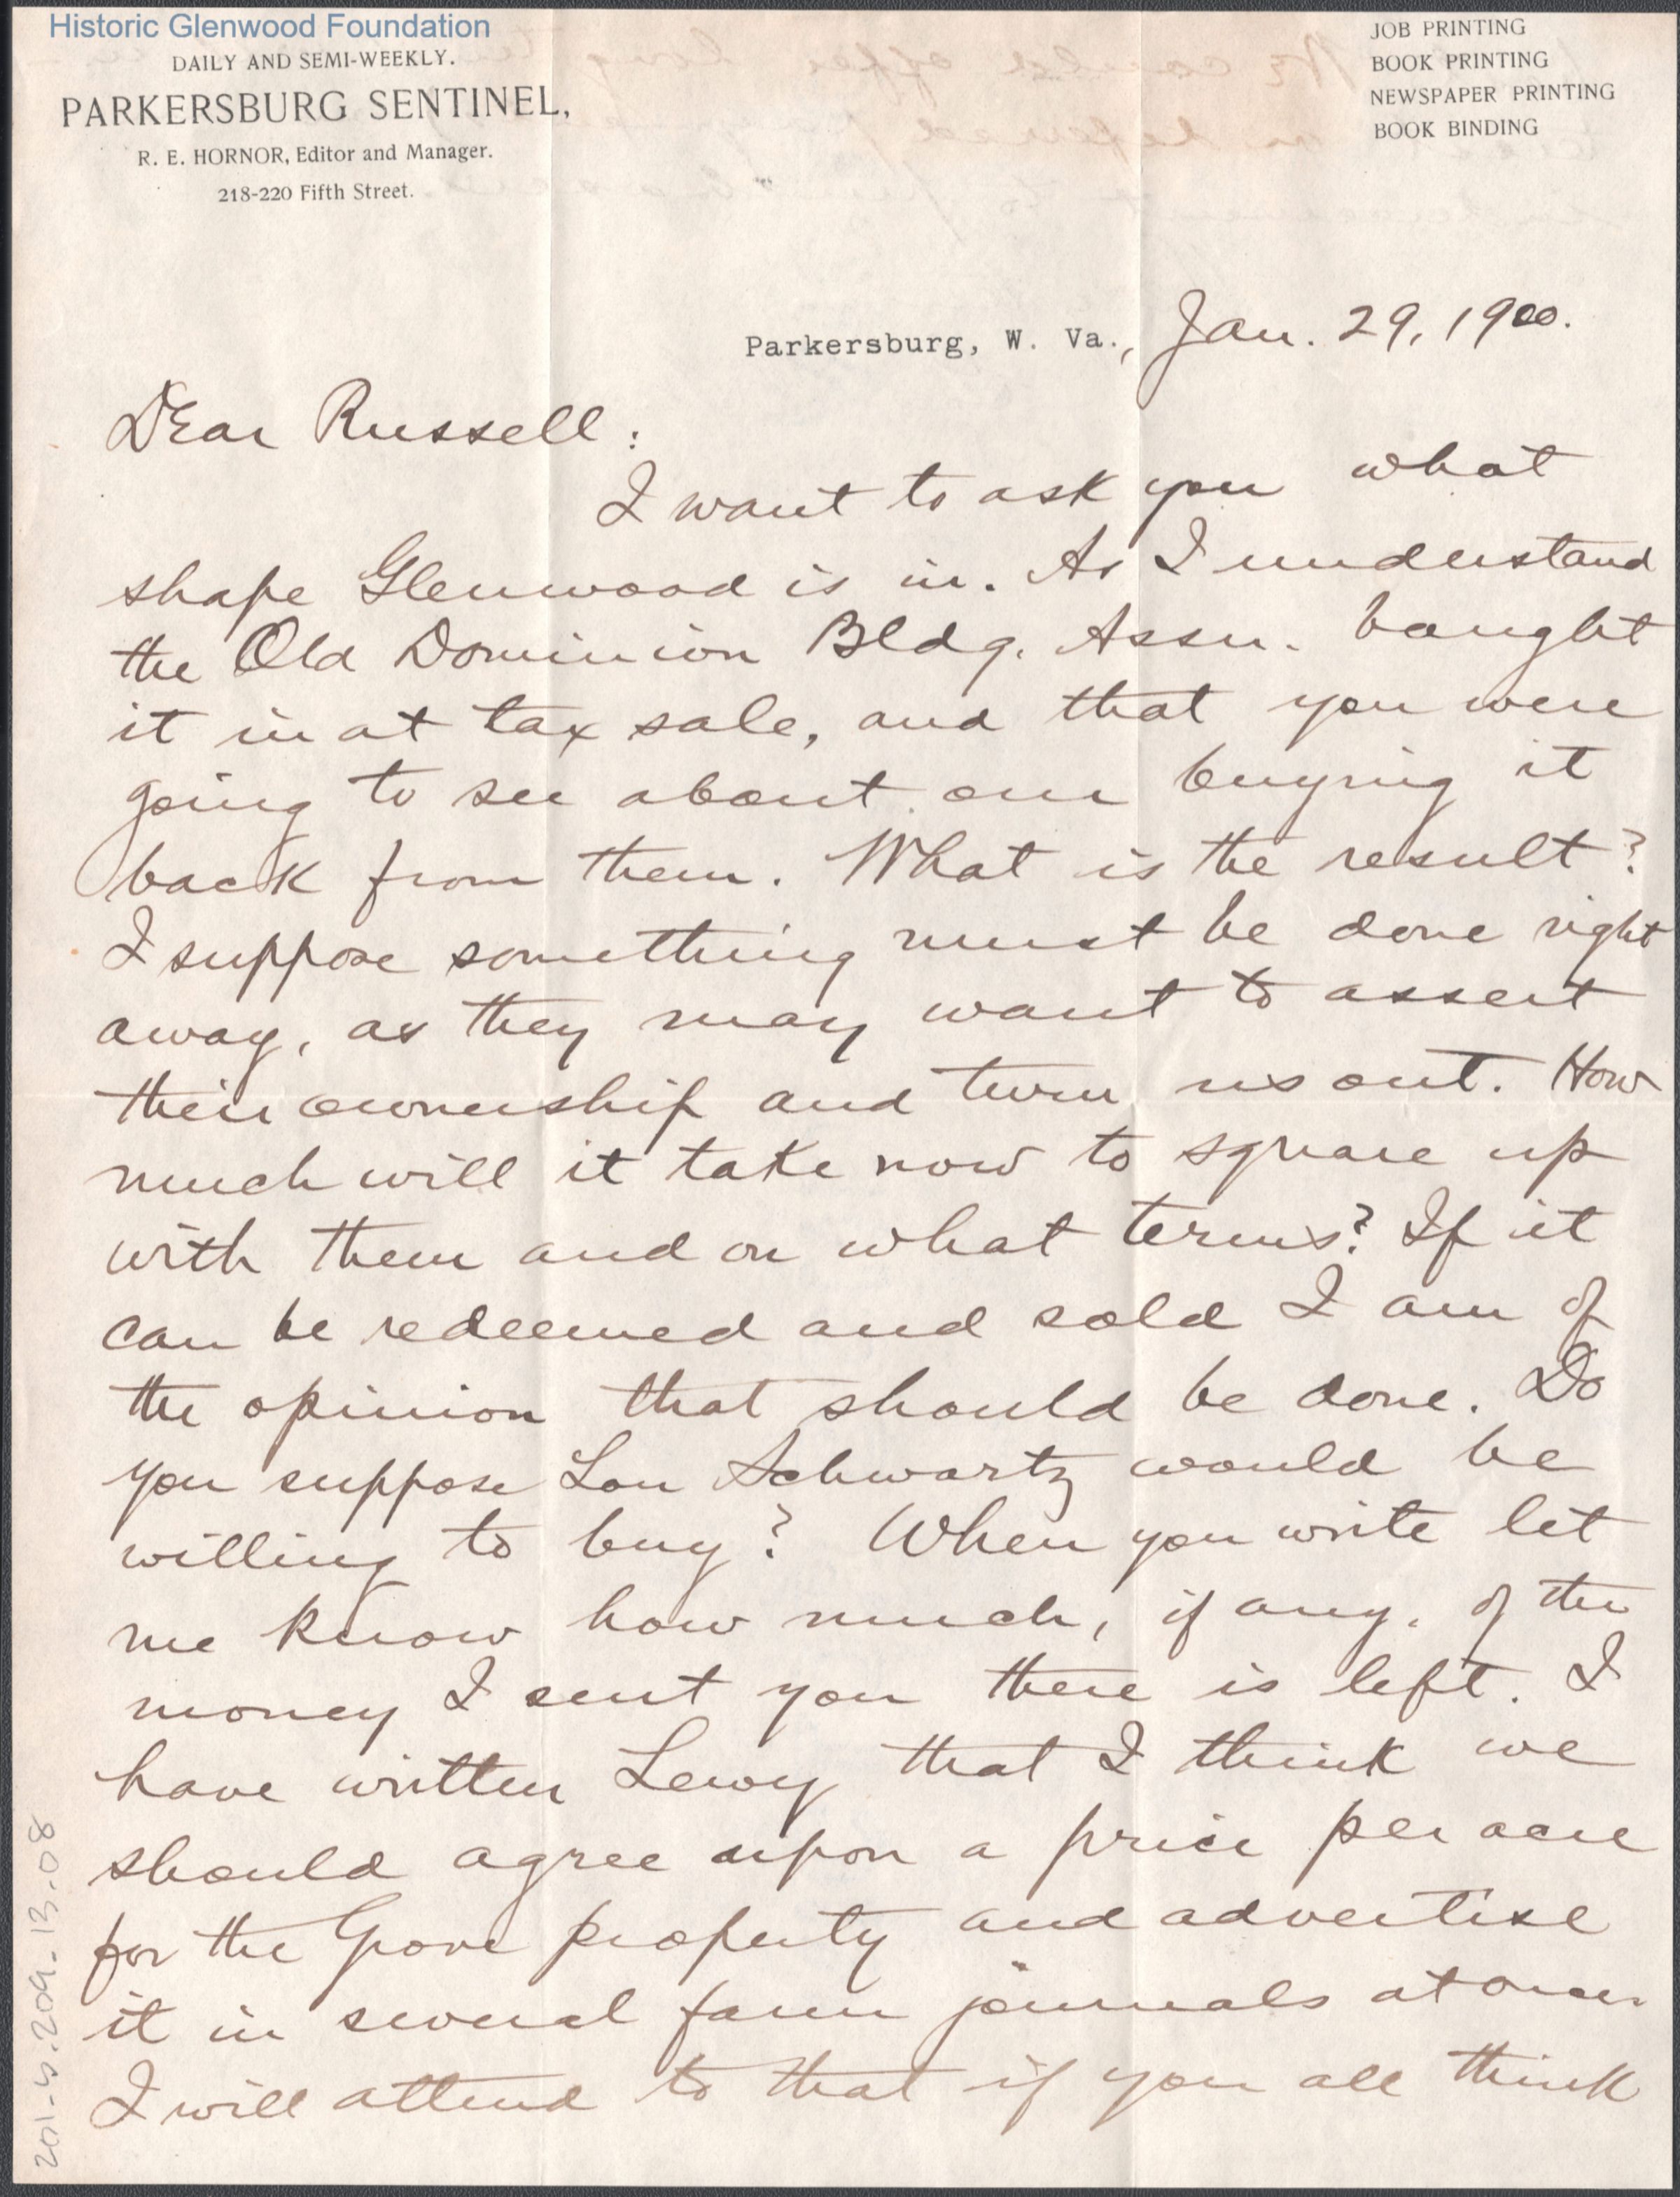 Historic Glenwood Foundation
DAILY AND SEMI-WEEKLY.
PARKERSBURG SENTINEL,
R. E. HORNOR, Editor and Manager.
218-220 Fifth Street.
JOB PRINTING
BOOK PRINTING
NEWSPAPER PRINTING
BOOK BINDING
Parkersburg, W. Va., Jan. 29, 1900.
Dear Russell:
I want to ask you what
shape Glenwood is in. As I understand
the Old Dominion Bldg. Assn. bought
it in at tax sale, and that you were
going to see about our buying it
back from them. What is the result?
I suppose something must be done right
away, as they may want to assert
their ownership and turn us out. How
much will it take now to square up
with them and on what terms? If it
can be redeemed and sold I am of
the opinion that should be done. Do
you suppose Lou Schwartz would be
willing to buy? When you write let
me know how much, if any, of the
money I sent you there is left. I
have written Lewy that I think we
should agree upon a price per acre
for the Grove property and advertise
it in several farm journals at once.
I will attend to that if you all think
201-S.209.13.08